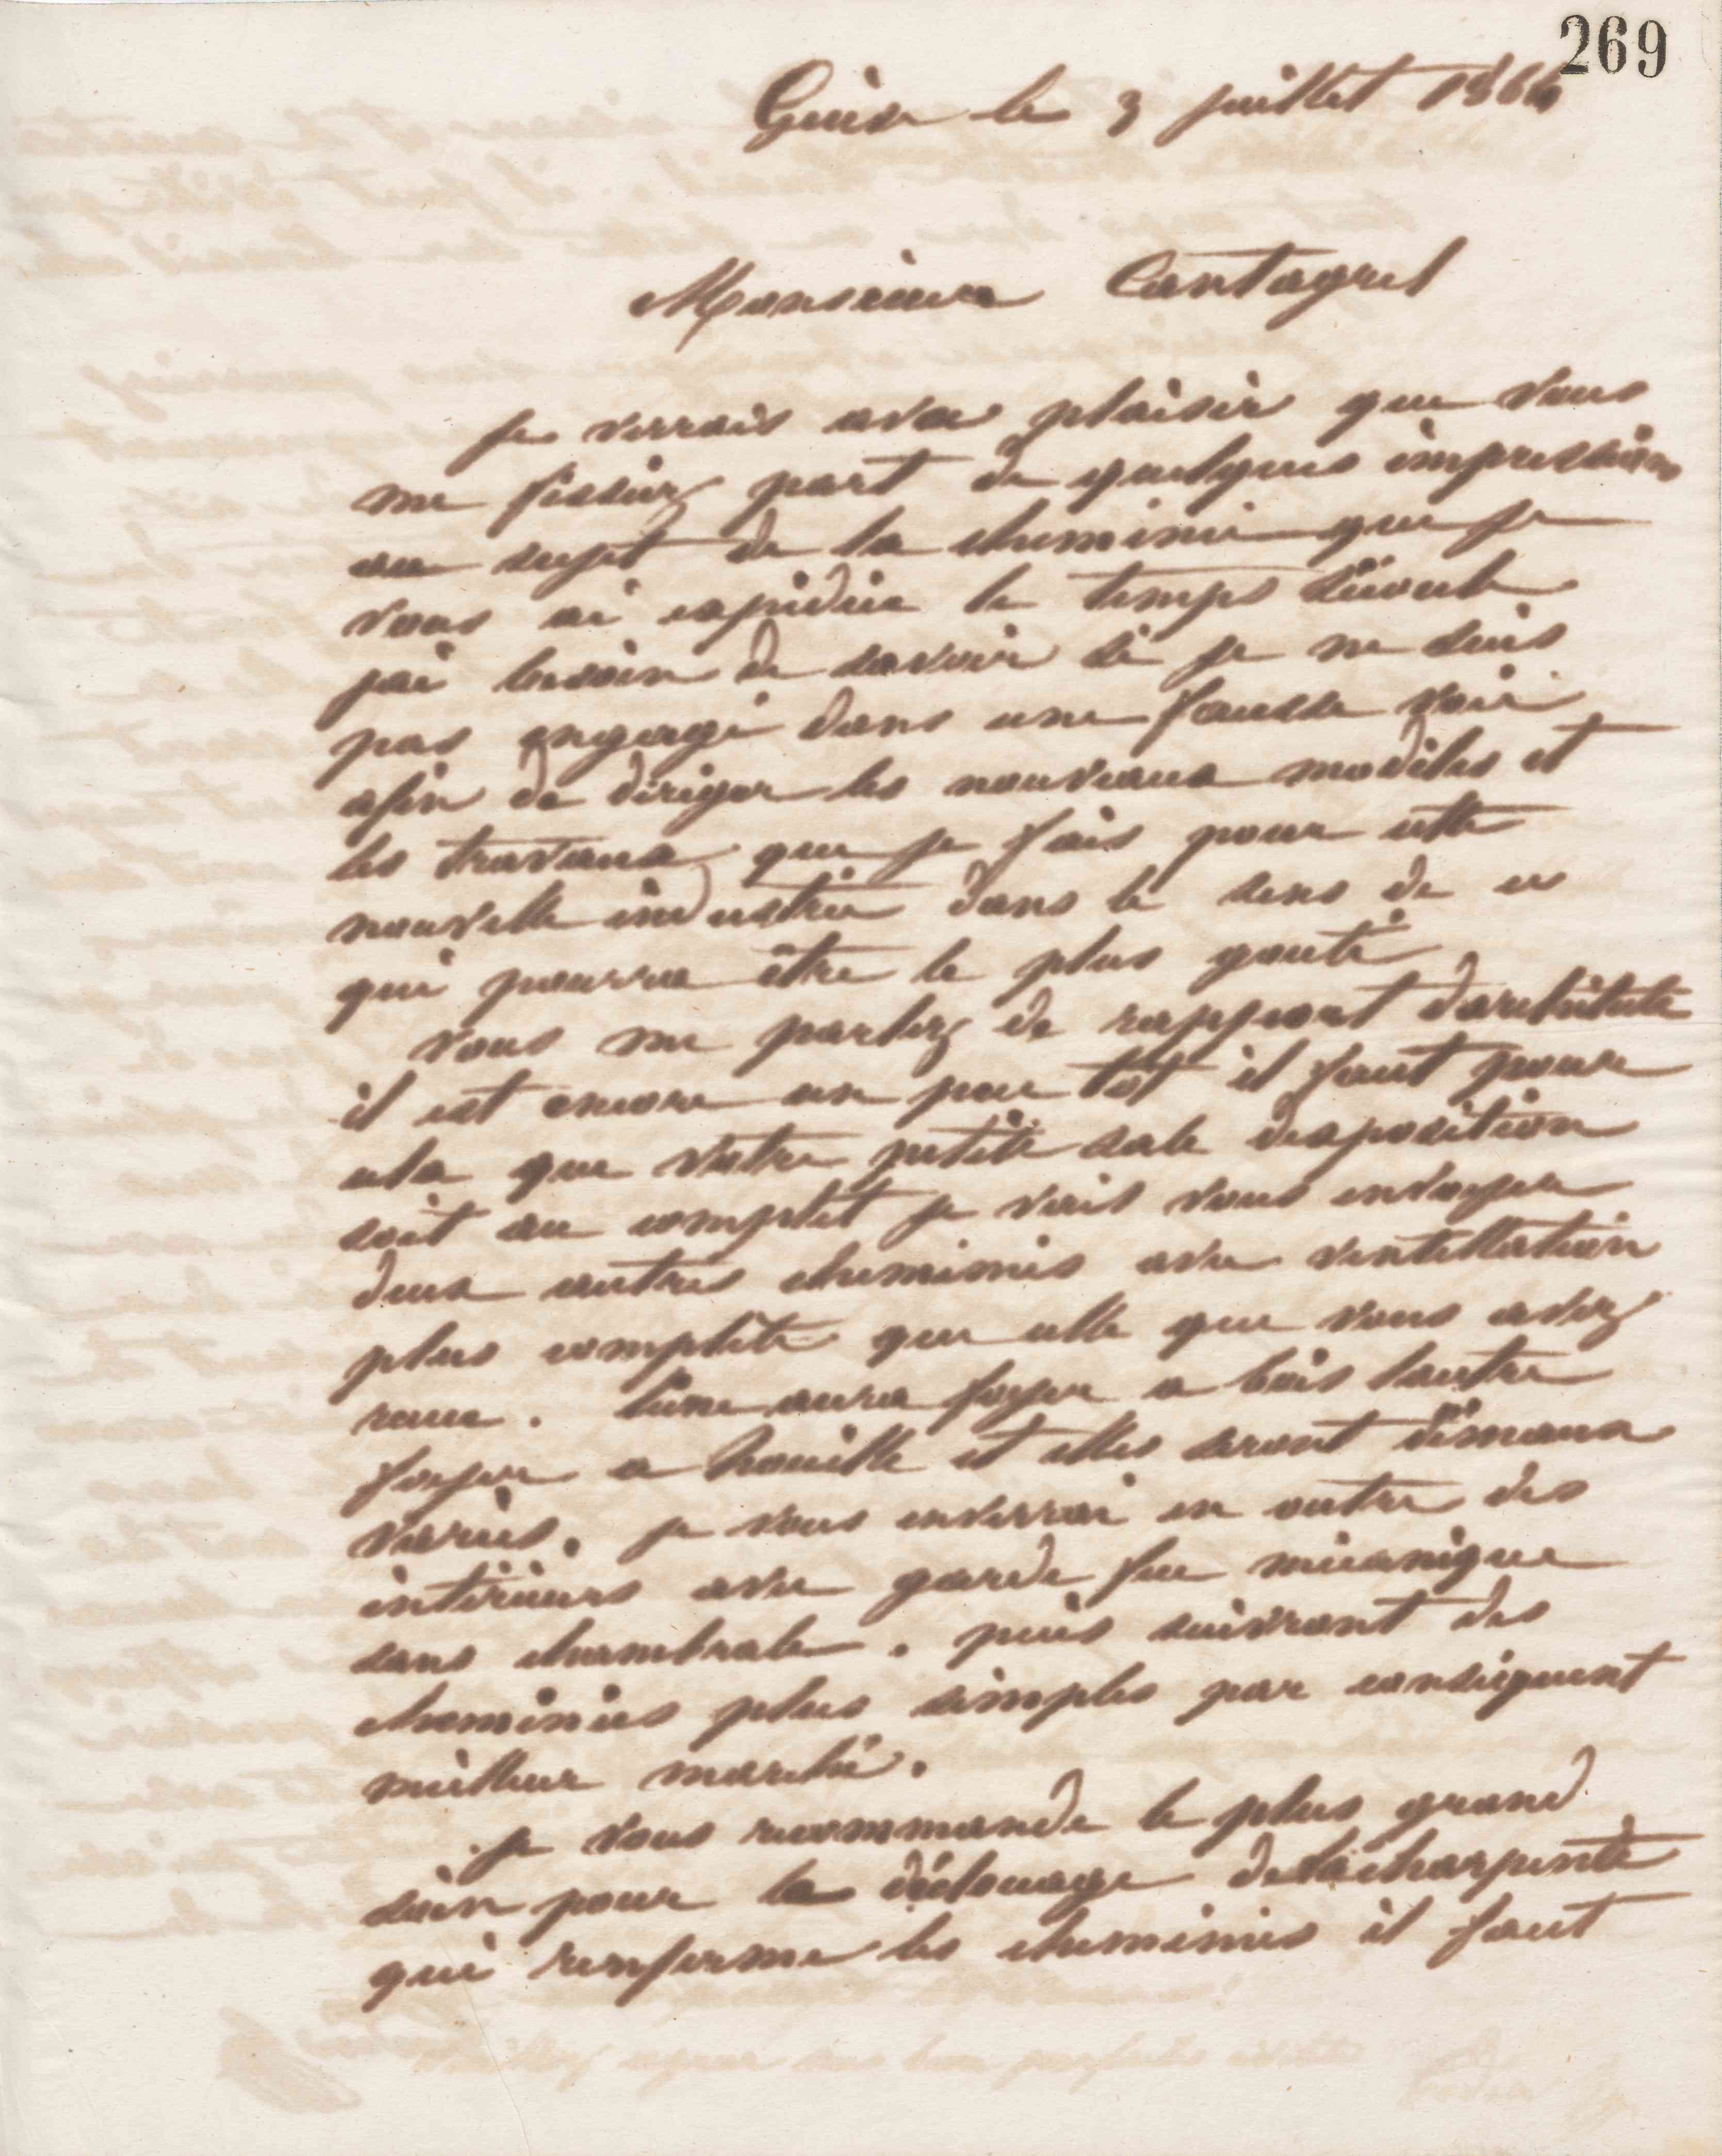 269
Guise le 3 juillet 1866
Monsieur Cantagrel
je verrais avec plaisir que vous
me fissiez part de quelques impressions
au sujet de la cheminée que je
vous ai expédiée le temps s'écoule
jai besoin de savoir si je ne suis
pas engagé dans une fausse voie
afin de diriger les nouveaux modèles et
les travaux que je fais pour cette
nouvelle industrie dans le sens de ce
qui pourra être le plus gouté
vous me parlez de rapport d'architecte
il est encore un peu tôt il faut pour
cela que votre petite sale dexposition
soit au complet je vais vous envoyer
deux autres cheminées avec ventillation
plus complète que celle que vous avez
reçue. l'une aura foyer a bois lautre
foyer a houille et elles seront démaux
variés. je vous enverrai en outre des
intérieurs avec garde feu mécanique
sans chambrale. puis suivront des
cheminées plus simples par conséquent
meilleur marché.
je vous recommande le plus grand
soin pour le déclouage de la charpente
qui renferme les cheminées il faut